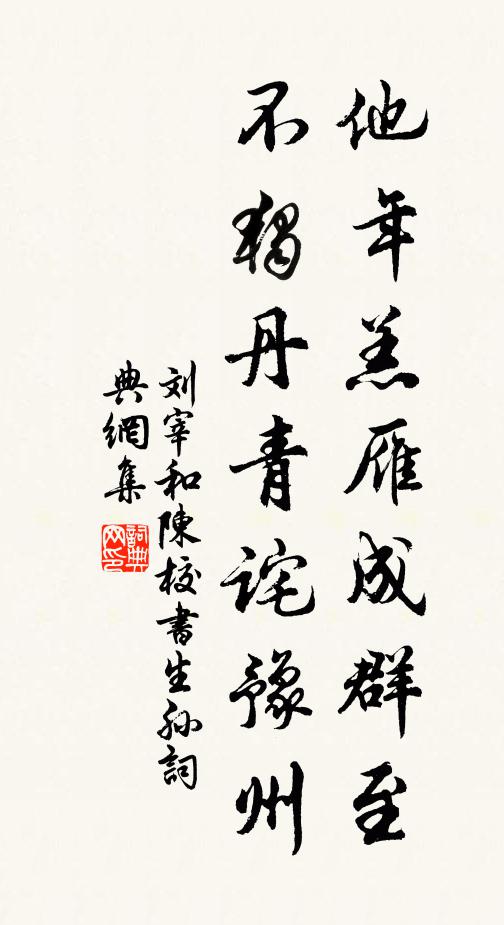 他年羔雁成群至
不独丹青詫豫州
刘宰和陳校書生孙詞
典網集
詞典
网印